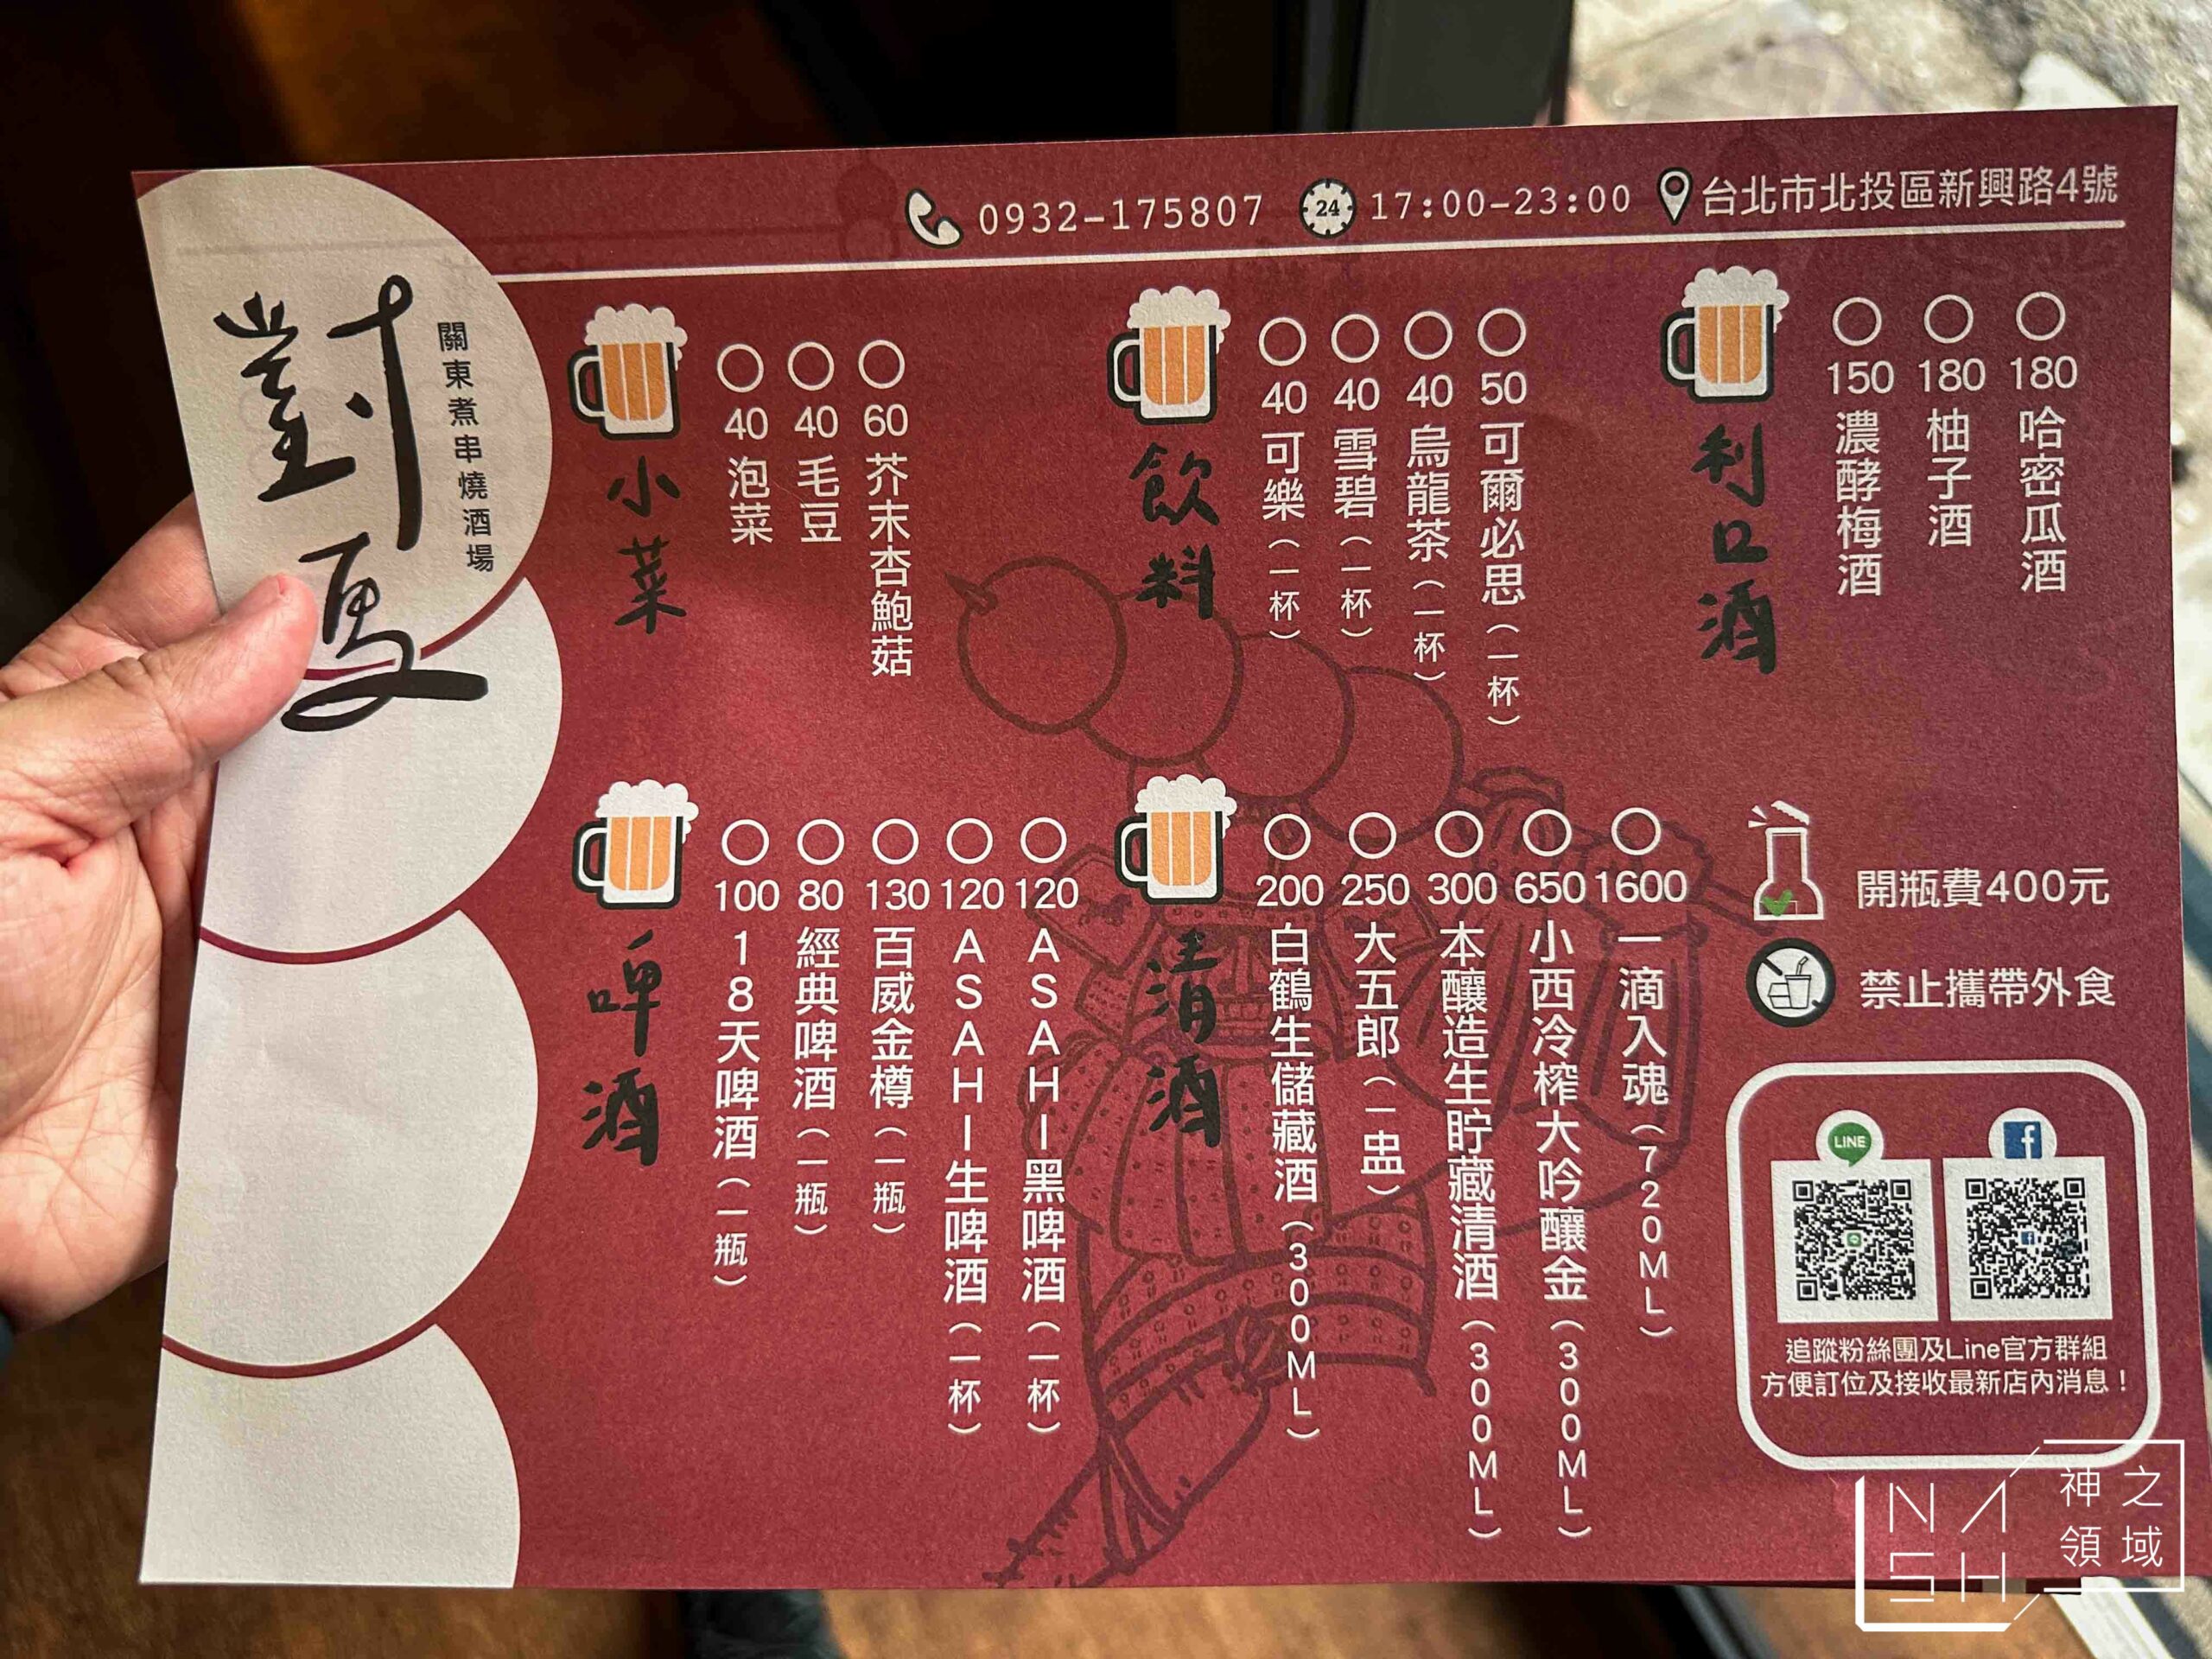 0932-175807
24
17:00-23:00
台北市北投區新興路4號
對
關東煮串燒酒場
小菜
40 泡菜
40 毛豆
60 芥末杏鮑菇
飲料
40 可樂(一杯)
40 雪碧(一杯)
40 烏龍茶(一杯)
50 可爾必思(一杯)
利口酒
150 濃酵梅酒
180 柚子酒
180 哈密瓜酒
啤酒
100 18天啤酒(一瓶)
80 經典啤酒(一瓶)
130 百威金樽(一瓶)
120 ASAHI生啤酒(一杯)
120 ASAHI黑啤酒(一杯)
清酒
200 白鶴生儲藏酒(300ML)
250 大五郎(一盅)
300 本釀造生貯藏清酒(300ML)
650 小西冷榨大吟釀金(300ML)
1600 一滴入魂(720ML)
開瓶費400元
禁止攜帶外食
LINE
f
追蹤粉絲團及Line官方群組
方便訂位及接收最新店內消息！
NASH
神之領域